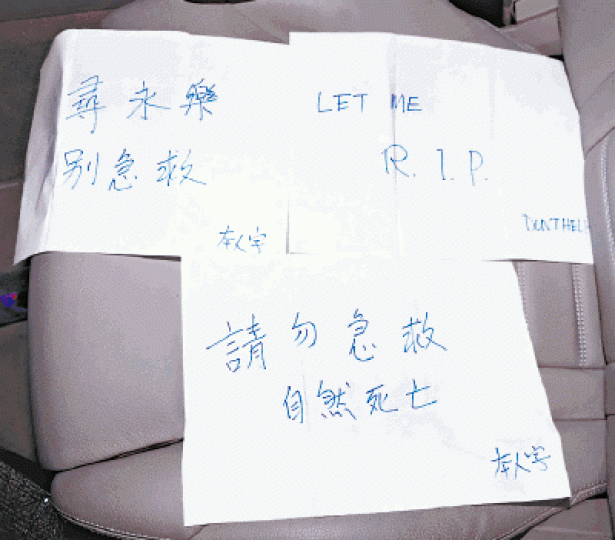 尋永樂
別急救
本人字
LET ME
R.I.P.
請勿急救
自然死亡
本人字